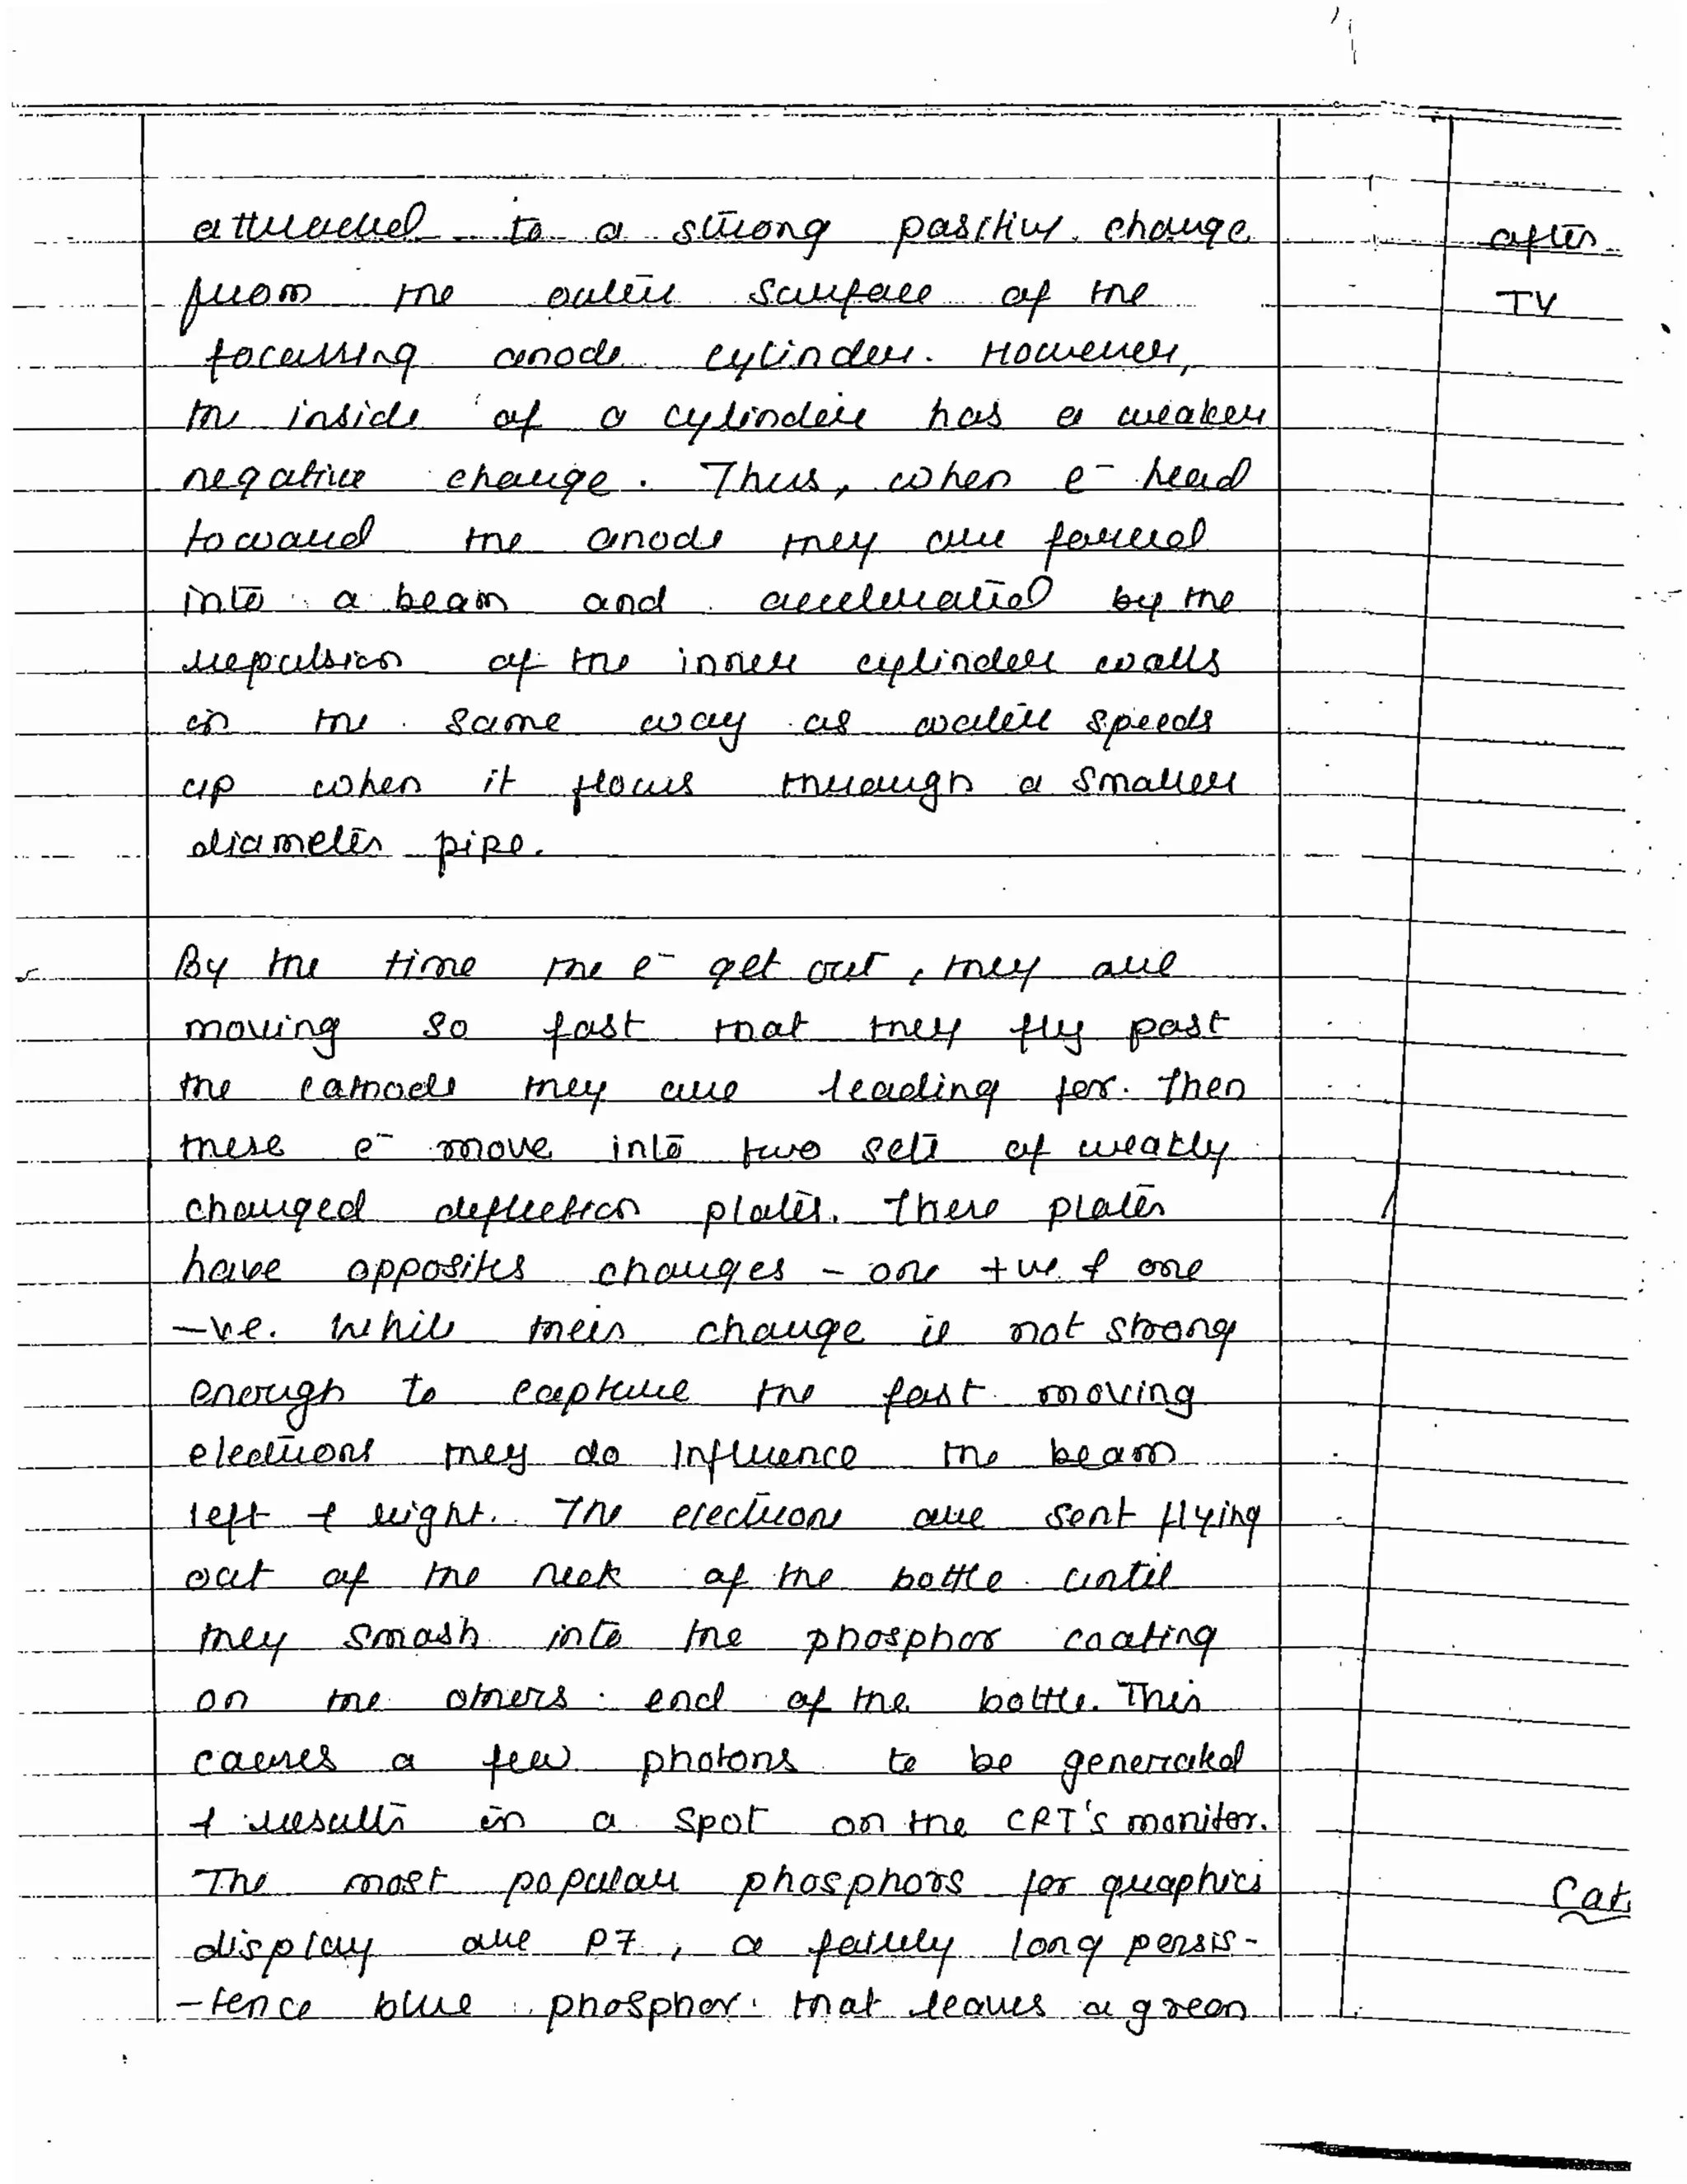 attracted to a strong positive charge
from the outer surface of the
focussing anode cylinder. However,
the inside of a cylinder has a weaker
negative charge. Thus, when e⁻ head
toward the anode they are forced
into a beam and accelerated by the
repulsion of the inner cylinder walls
in the same way as water speeds
up when it flows through a smaller
diameter pipe.
By the time the e⁻ get out, they are
moving so fast that they fly past
the cathode they are leading for. Then
these e⁻ move into two sets of weakly
charged deflection plates. These plates
have opposites charges - one +ve & one
-ve. While their charge is not strong
enough to capture the fast moving
electrons they do influence the beam
left & right. The electrons are sent flying
out of the neck of the bottle until
they smash into the phosphor coating
on the others end of the bottle. This
causes a few photons to be generated
& results in a spot on the CRT's monitor.
The most popular phosphors for graphics
display are P7, a fairly long persis-
-tence blue phosphor that leaves a green
after
TV
Cat